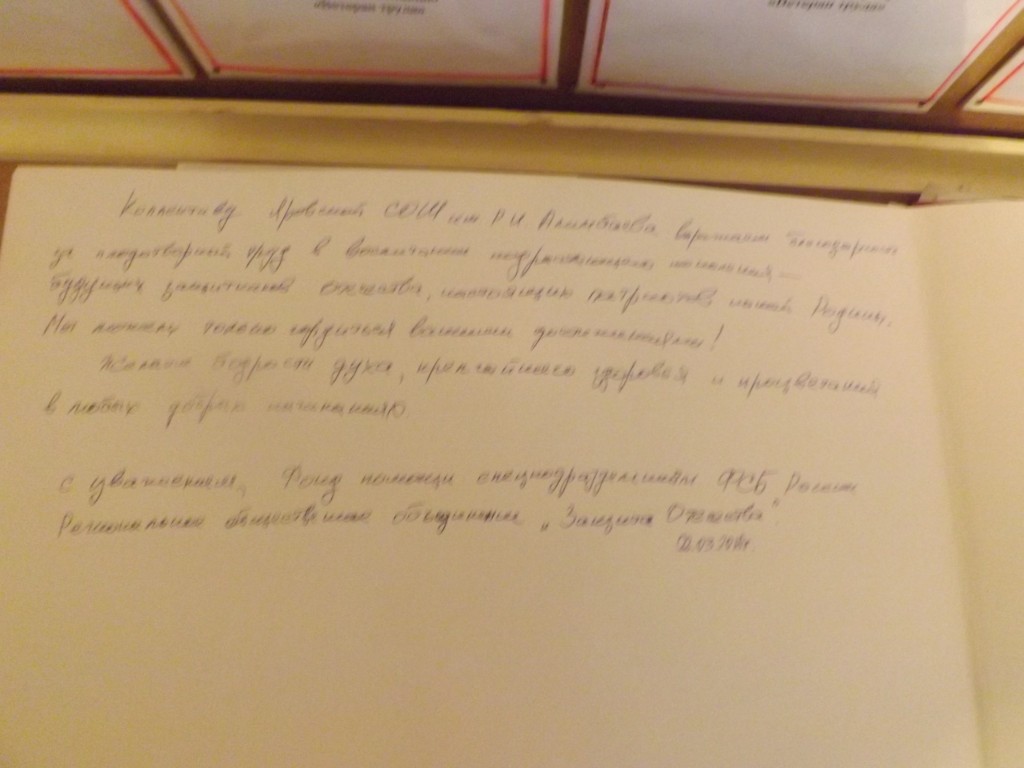 «Ветеран труда»
«Ветеран труда»
Коллективу Яровской СОШ им Р.И. Алимбаева выражаем благодарность
за плодотворный труд в воспитании подрастающего поколения —
будущих защитников отечества, настоящих патриотов нашей Родины.
Мы можем только гордиться вашими достижениями!
Желаем бодрости духа, крепчайшего здоровья и процветаний
в любых добрых начинаниях.
С уважением, Фонд помощи спецподразделениям ФСБ России
Региональное общественное объединение „Защита Отечества".